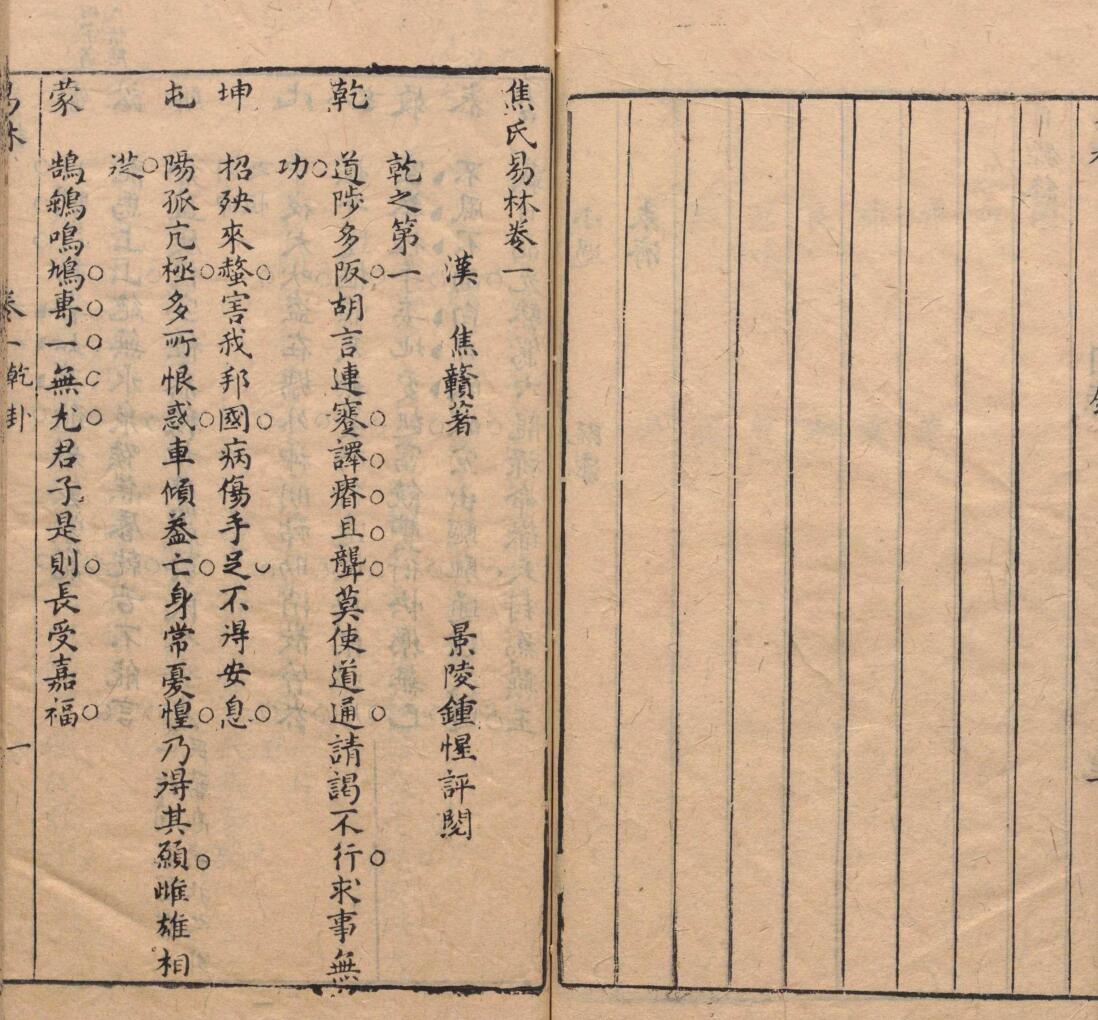 焦氏易林卷一
漢 焦贛著 景陵鍾惺評閱
乾之第一
乾 道陟多阪胡言連蹇譯瘖且聾莫使道通請謁不行求事無
功
坤 招殃來螫害我邦國病傷手足不得安息
屯 陽孤亢極多所恨惑車傾葢亡身常憂惶乃得其願雌雄相
從
蒙 鵠鵴鳴鳩專一無尤君子是則長受嘉福
易林 卷一乾卦 一